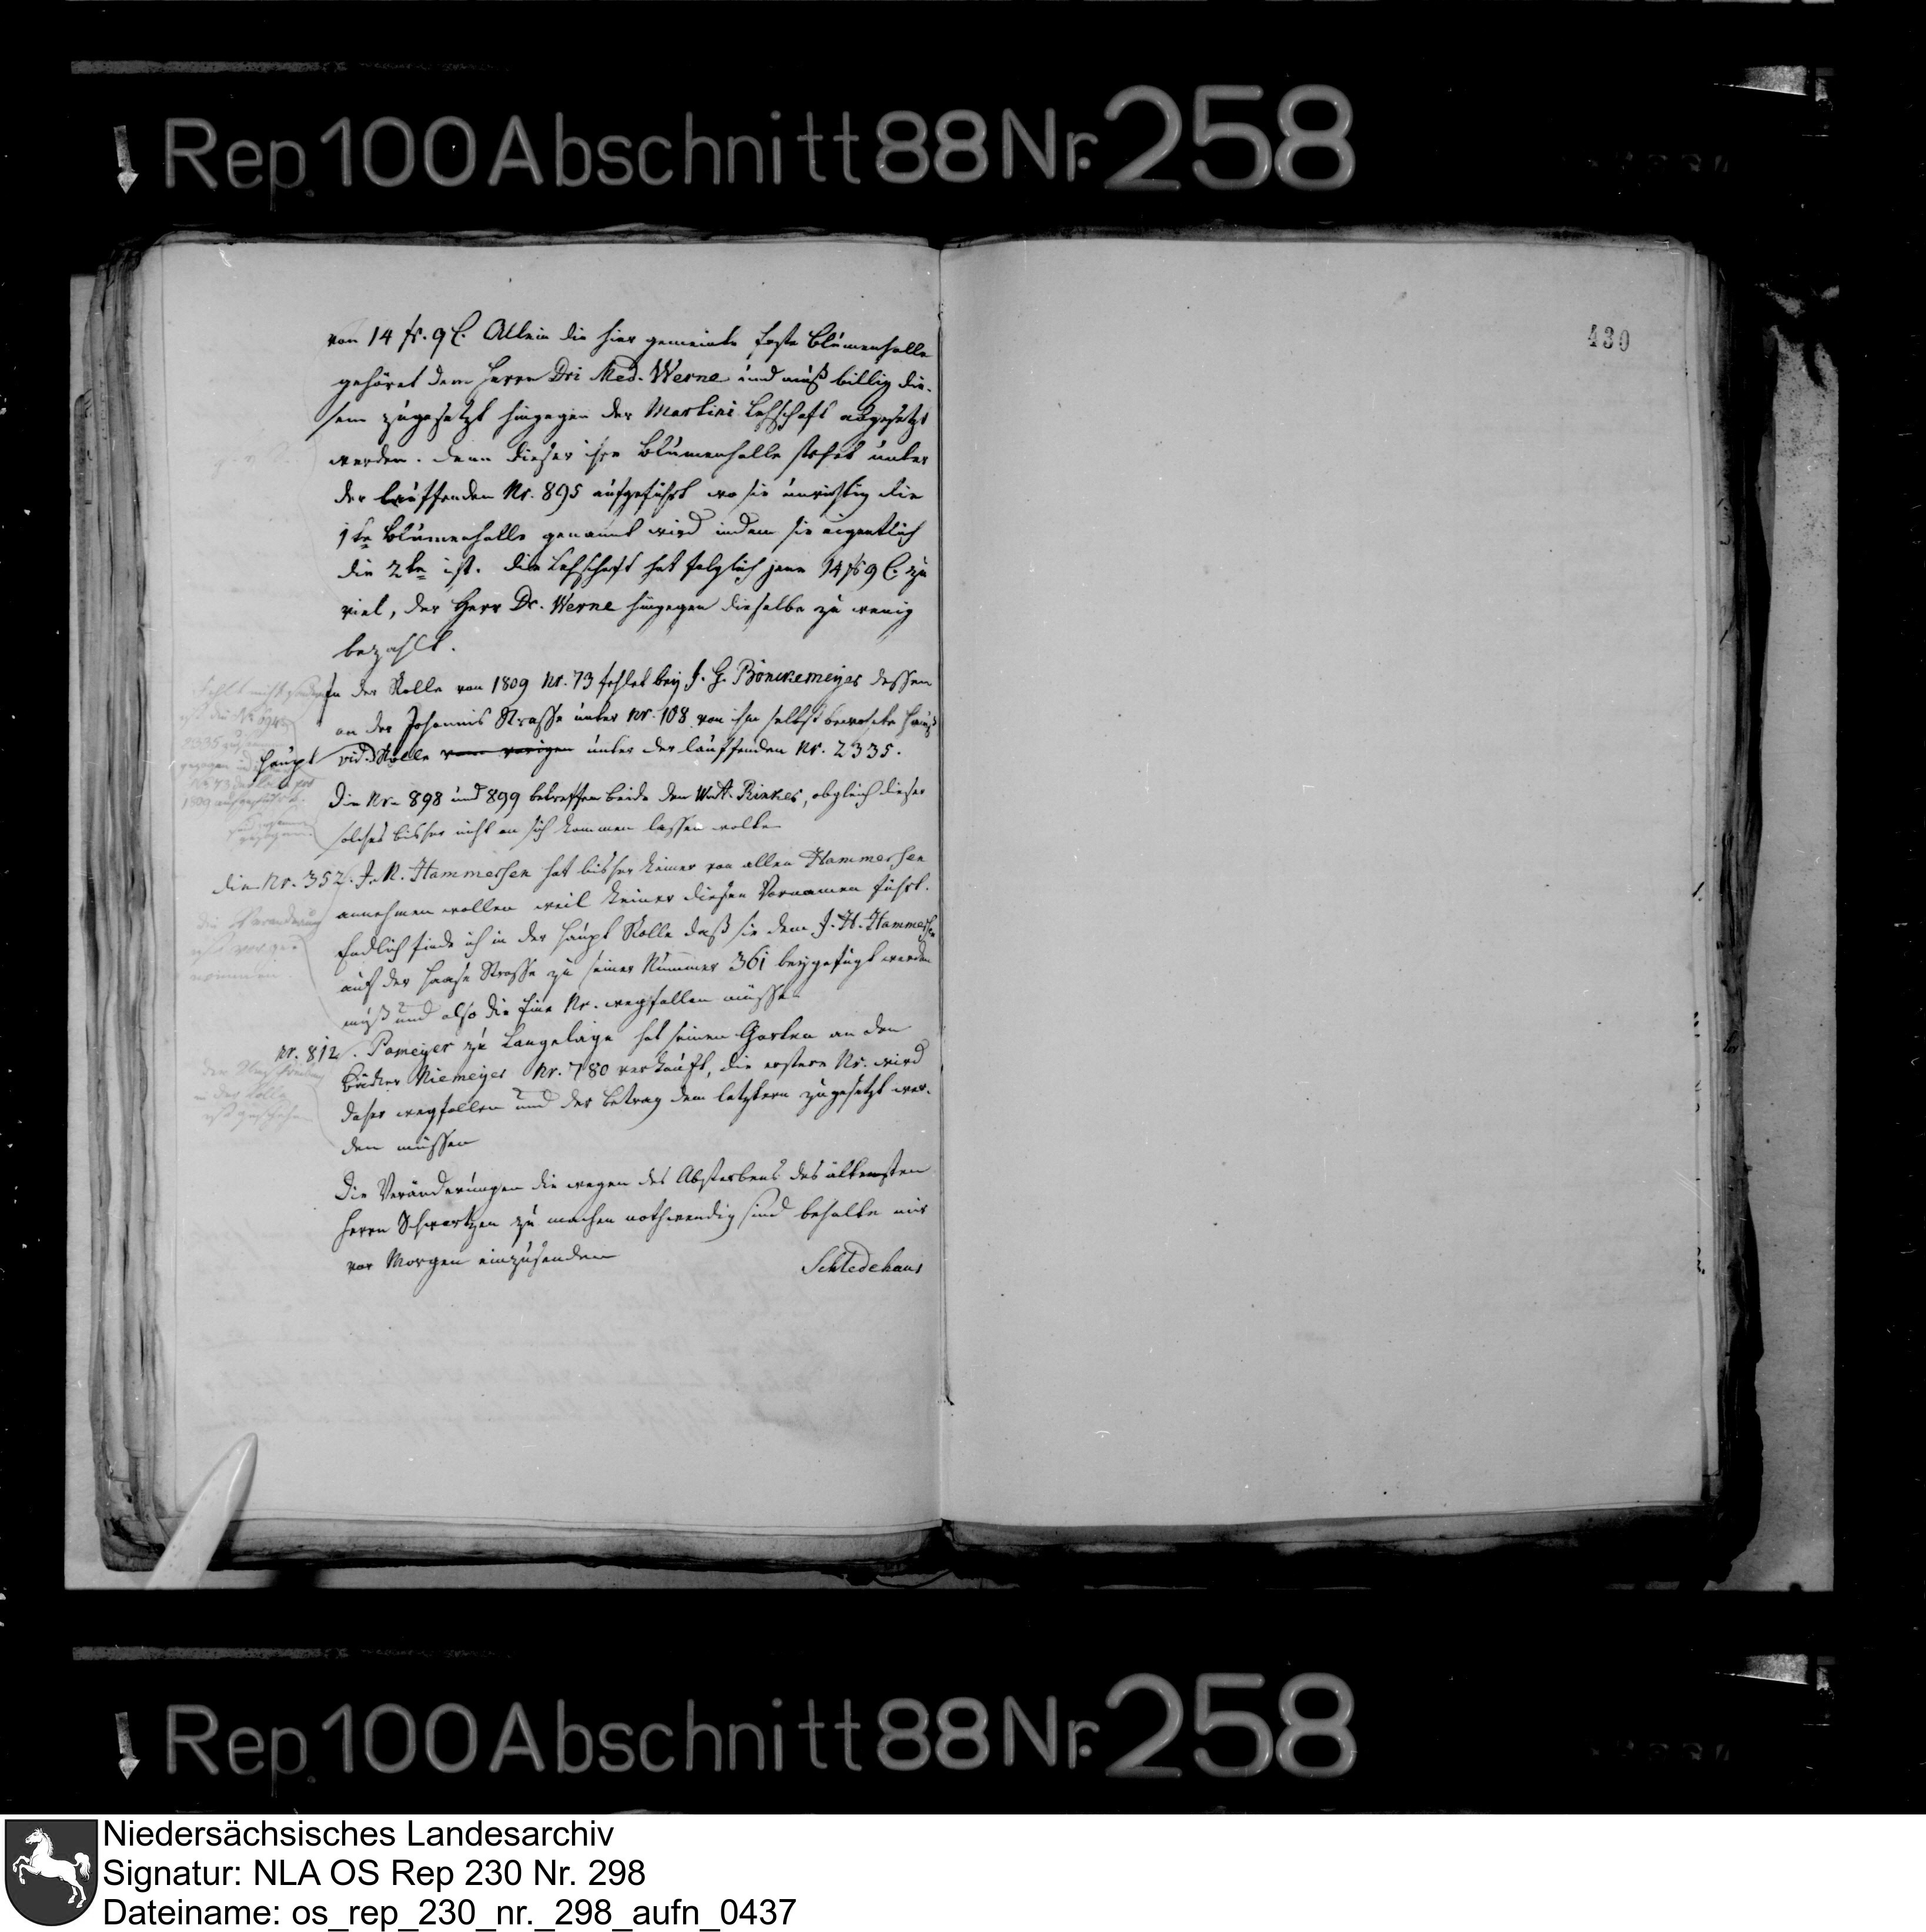 Rep. 100 Abschnitt 88 Nr. 258
430
von 14 fr. 9 C. Allein die hier gemeinte erste Blumenhalle
gehöret dem Herrn Dri Med. Werne und muß billig die-
sem zugesetzt hingegen der Martini Lohschaft abgesetzt
werden. denn dieser ihre Blumenhalle stehet unter
der lauffenden Nr. 895 aufgeführt wo sie unrichtig die
1te Blumenhalle genannt wird indem sie eigentlich
die 2te ist. die Lohschaft hat folglich jene 14 fr 9 C. zu
viel, der Herr Dr. Werne hingegen dieselbe zu wenig
bezahlt.
In der Rolle von 1809 Nr. 73 fehlet bey J. H. Bönckemeyer dessen
an der Johannis Strasse unter Nr. 108 von ihm selbst bewohnte Hauß
vid. Haupt Rolle vom vorigen unter der lauffenden Nr. 2335.
Die Nr. 898 und 899 betreffen beide den Witt. Rinkes, obgleich dieser
solches bisher nicht an sich kommen lassen wolte
die Nr. 352. J. R. Hammersen hat bisher keiner von allen Hammersen
annehmen wollen weil keiner diesen Vornamen führt.
Endlich finde ich in der Haupt Rolle daß sie dem J. H. Hammersen
auf der Haase Strasse zu seiner Nummer 361 beygefügt werden
muß und also die eine Nr. wegfallen müsse
Nr. 812. Pomeyer zu Langelage hat seinen Garten an den
Bäcker Niemeyer Nr. 780 verkauft, die erstere Nr. wird
daher wegfallen und der Betrag dem letztern zugesetzt wer-
den müssen
Die Veränderungen die wegen des Absterbens des ältesten
Herrn Schwartzen zu machen nothwendig sind behalte mir
vor Morgen einzusenden
Schledehaus
die Veränderung
ist vorge-
nommen
in der Rolle
ist geschehen
Rep. 100 Abschnitt 88 Nr. 258
Niedersächsisches Landesarchiv
Signatur: NLA OS Rep 230 Nr. 298
Dateiname: os_rep_230_nr._298_aufn_0437